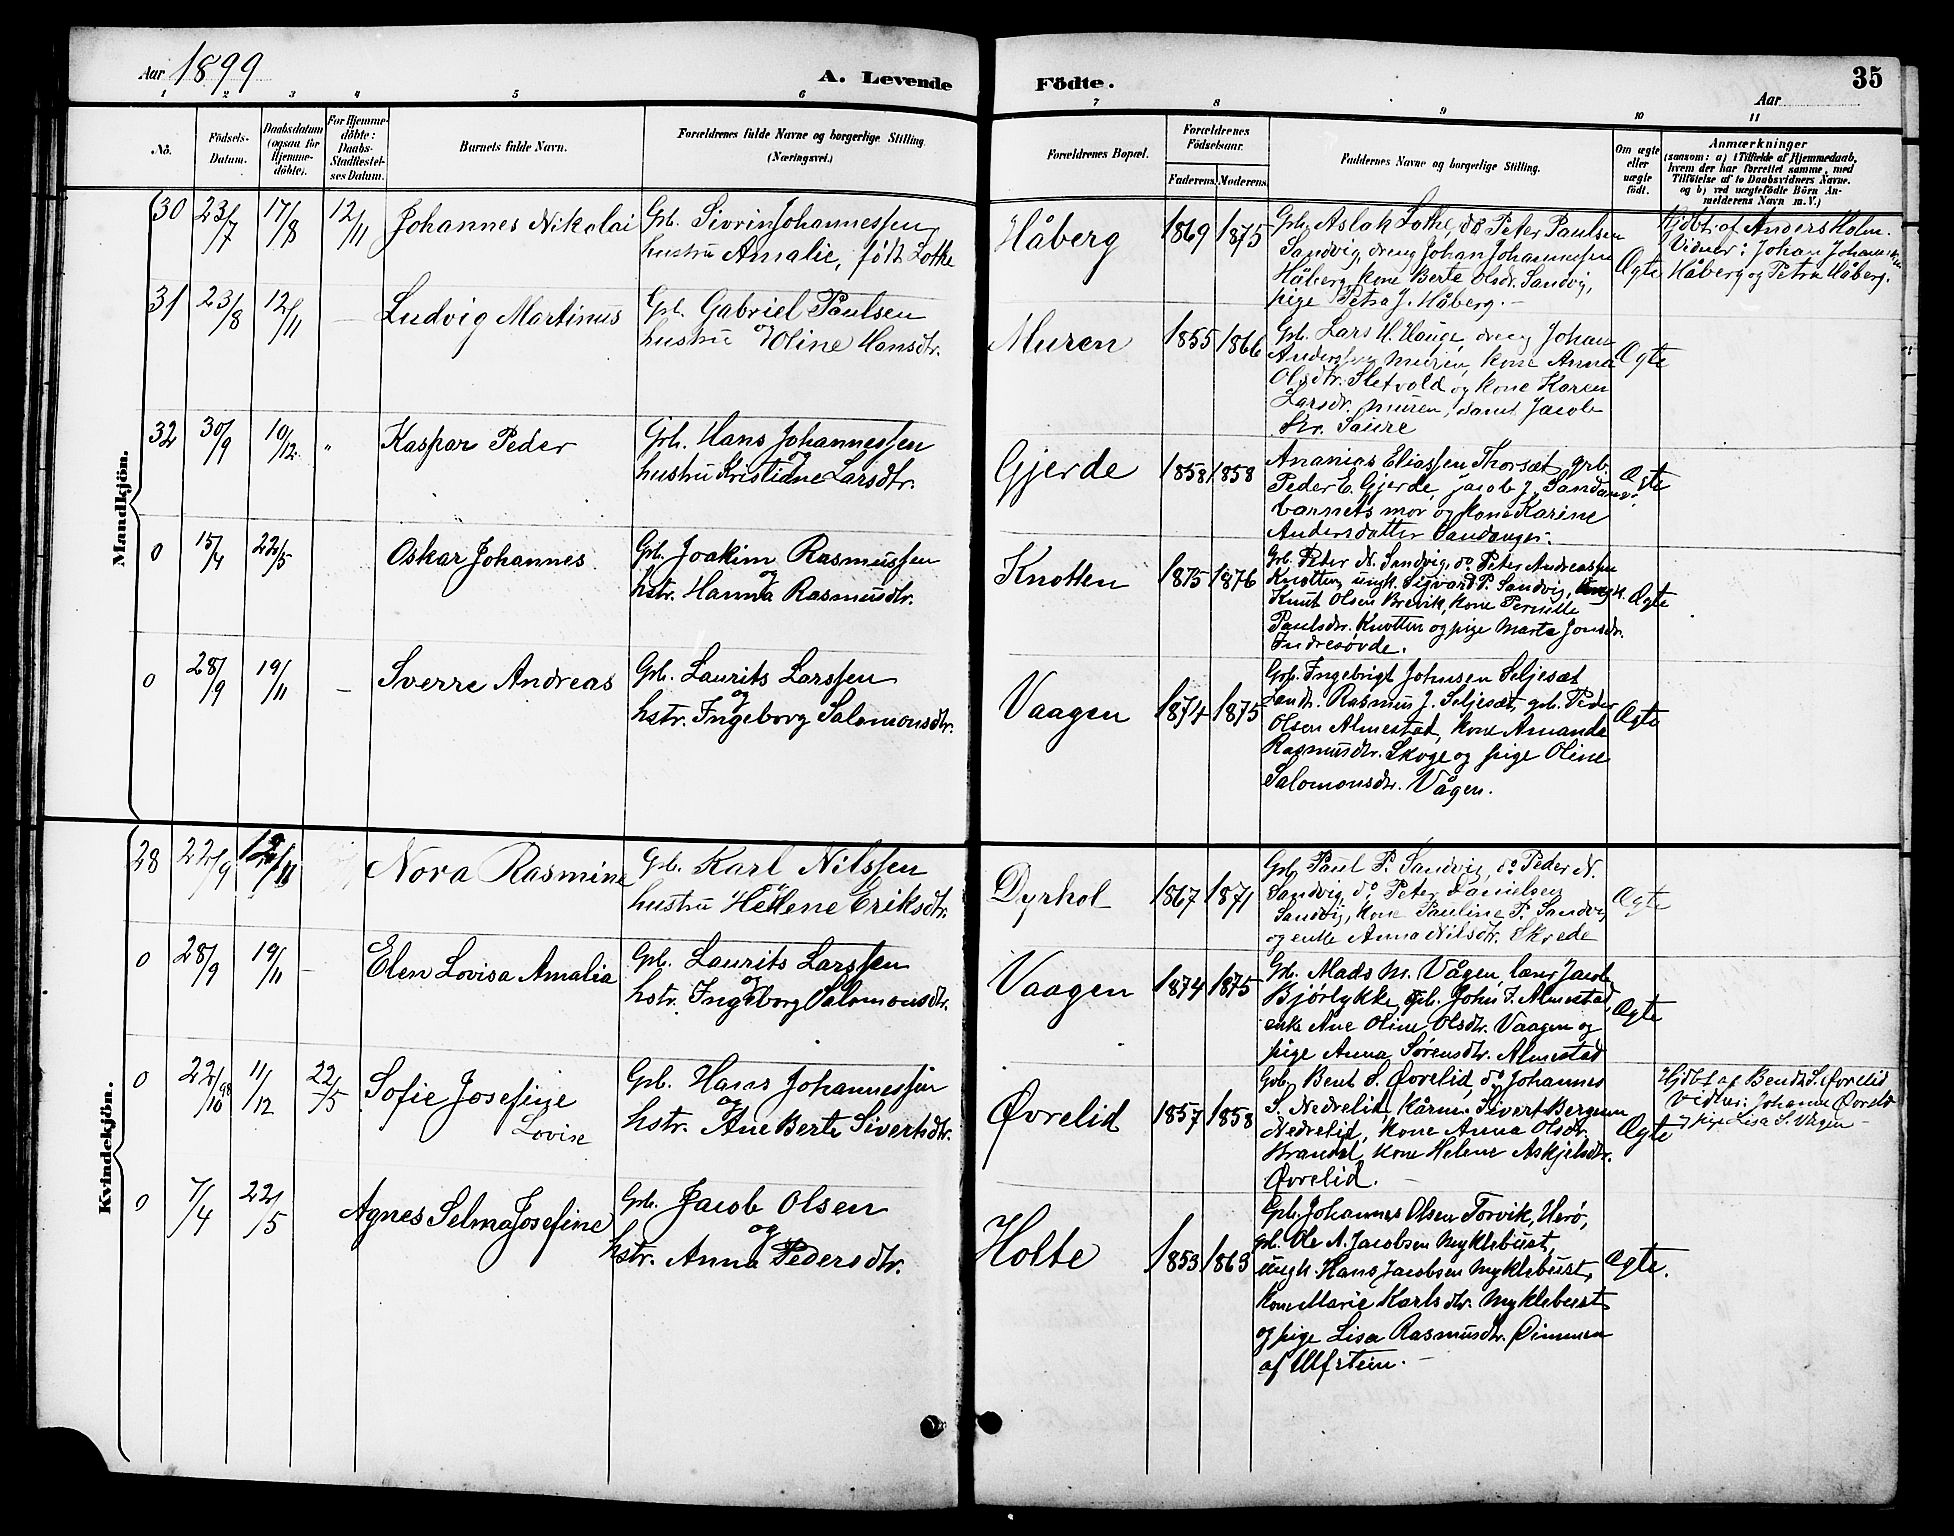 Aar 1899
A. Levende
Födte.
35
Aar
1 2 3 4 5 6 7 8 9 10 11
No.
Födsels-
Datum.
Daabsdatum
(ogsaa for
Hjemme-
döbte).
For Hjemme-
döbte:
Daabs-
Stadfæstel-
ses Datum.
Barnets fulde Navn.
Forældrenes fulde Navne og borgerlige Stilling.
(Næringsvei.)
Forældrenes Bopæl.
Forældrenes
Födselsaar.
Faderens. Moderens.
Faddernes Navne og borgerlige Stilling.
Om ægte
eller
uægte
födt.
Anmærkninger
(saasom: a) i Tilfælde af Hjemmedaab,
hvem der har forrettet samme, med
Tilföielse af to Daabsvidners Navne.
og b) ved uægtefödte Börn An-
melderens Navn m. V.)
Mandkjön.
30 23/7 17/8 12/11 Johannes Nikolai
Gbr. Sivrin Johannessen
hustru Amalie, født Lothe
Håberg 1869 1875
Gbr. Aslak Lothe, do Peter Paulsen
Sandvig, dreng Johan Johannessen
Håberg, kone Berte Olsdr. Sandvig,
pige Petra J. Håberg. -
Ægte
Hjdbt. af Anders Holm.
Vidner: Johan Johannessen
Håberg og Petra Håberg.
31 23/8 12/11 - Ludvig Martinus
Gbr. Gabriel Paulsen
og
hustru Oline Hansdtr.
Muren 1855 1866
Gbr. Lars H. Hauge, dreng Johan
Andersen Muren, kone Anna
Olsdtr. Sletvold og kone Karen
Larsdr. Muren, samt Jacob
Kr. Saure
Ægte
32 30/9 10/12 " Kaspar Peder
Grb. Hans Johannessen
og
hustru Kristiane Larsdtr.
Gjerde 1858 1858
Ananias Eliassen Thorsæt, grb.
Peder E. Gjerde, Jacob J. Sandanger
barnets mor og kone Karine
Andersdatter Sandanger.
Ægte
0 15/4 22/5 Oskar Johannes
Grb. Joakim Rasmussen
og
hstr. Hanna Rasmusdtr.
Knotten 1875 1876
Grb. Peter N. Sandvig, do Peter Andreassen
Knotten, ungk. Sigvard P. Sandvig, ungk.
Knut Olsen Brevik, kone Pernille
Paulsdtr. Knotten og pige Marta Jonsdr.
Indresøvde.
Ægte
0 28/9 19/11 - Sverre Andreas
Grb. Laurits Larssen
og
hstr. Ingeborg Salomonsdtr.
Vaagen 1874 1875
Grb. Ingebrigt Johnsen Seljesæt
Landh. Rasmus J. Seljesæt, grb. Peder
Olsen Almestad, kone Amanda
Rasmusdtr. Skoge og pige Oline
Salomonsdtr. Vågen.
Ægte
Kvindekjön.
28 22/9 12/11 Nora Rasmine
Grb. Karl Nilssen
hustru Hellene Eriksdtr.
Dyrhol 1867 1871
Grb. Paul P. Sandvig, do Peder N.
Sandvig, do Peter Danielsen
Sandvig, kone Pauline P. Sandvig
og enke Anna Nilsdtr. Skrede
Ægte
0 28/9 19/11 - Elen Lovisa Amalia
Grb. Laurits Larssen
og
hstr. Ingeborg Salomonsdtr.
Vaagen 1874 1875
Grb. Mads M. Vågen, lærer Jacob
Bjørlykke, grb. John J. Almestad,
enke Ane Oline Olsdtr. Vaagen og
pige Anna Sørensdtr. Almestad
Ægte
0 22/10 98 11/12 22/5 Sofie Josefine
Lovise
Grb. Hans Johannessen
og
hstr. Ane Berte Sivertsdtr.
Øvrelid 1857 1858
Grb. Bent S. Øvrelid, do Johannes
S. Nedrelid, Kårm. Sivert Bergmun
Nedrelid, kone Anna Olsdtr.
Brandal, kone Helene Askjelsdtr.
Øvrelid. -
Ægte
Hjdbt af Bendt S. Øvrelid
Vidner: Johanne Øvrelid
pige Lisa S. Vågen -
0 7/4 22/5 Agnes Selma Josefine
Grb. Jacob Olsen
og
hstr. Anna Pedersdtr.
Holte 1853 1863
Grb. Johannes Olsen Torvik, Herø,
grb. Ole A. Jacobsen Myklebust,
ungk. Hans Jacobsen Myklebust,
kone Marie Karlsdtr. Myklebust
og pige Lisa Rasmusdtr. Dimmen
af Ulfstein. -
Ægte.